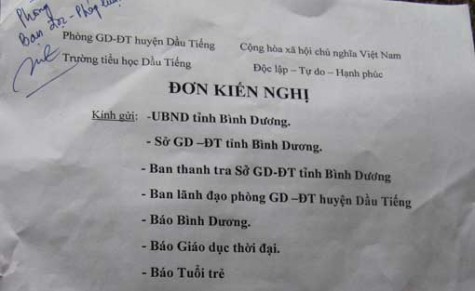 Phòng
Bạn đọc - Pháp luật
Phòng GD-ĐT huyện Dầu Tiếng Cộng hòa xã hội chủ nghĩa Việt Nam
Trường tiểu học Dầu Tiếng Độc lập – Tự do – Hạnh phúc
ĐƠN KIẾN NGHỊ
Kính gửi: -UBND tỉnh Bình Dương.
- Sở GD –ĐT tỉnh Bình Dương.
- Ban thanh tra Sở GD-ĐT tỉnh Bình Dương
- Ban lãnh đạo phòng GD –ĐT huyện Dầu Tiếng
- Báo Bình Dương.
- Báo Giáo dục thời đại.
- Báo Tuổi trẻ